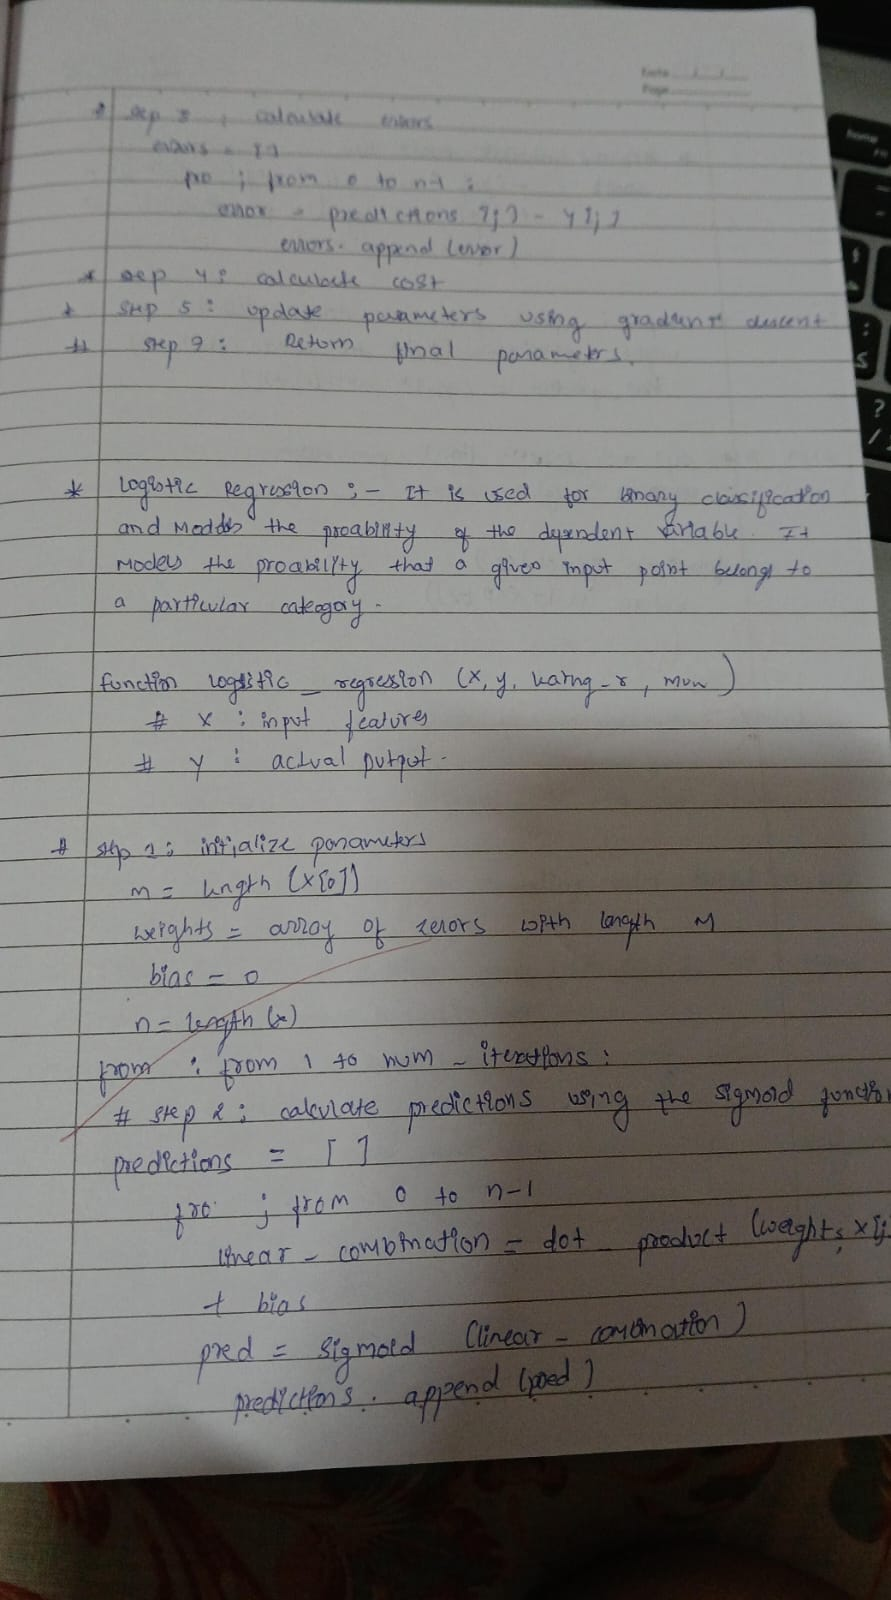 Date
Page
* step 3 : calculate errors
errors = [ ]
for j from 0 to n-1 :
error = predictions [j] - y[j]
errors. append (error)
* step 4 : calculate cost
* step 5 : update parameters using gradient descent
# step 7 : Return final parameters.
* Logistic Regression :- It is used for binary classification
and Models the proability of the dependent variable. It
Models the proability that a given input point belongs to
a particular category.
function logistic _ regression (x, y,
# x : input features
# y : actual output.
# step 1 : intialize parameters
m = length (x[0])
weights = array of zerors with length M
bias = 0
n = length (x)
from : from 1 to num - iterations :
# step 2 : calculate predictions using the sigmoid function
predictions = [ ]
fro j from 0 to n-1
linear - combination = dot product (weights, x[j]
+ bias
pred = sigmoid (linear - combination)
predictions . append (pred)